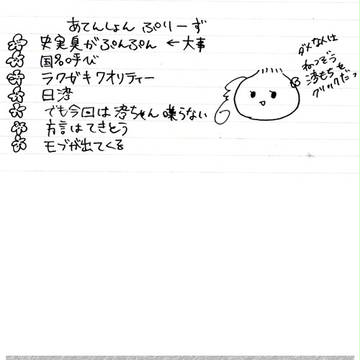 あてんしょん ぷりーず
史実臭がぷんぷん ←大事
国名呼び
ラクガキクオリティー
日湾
でも今回は湾ちゃん喋らない
方言はてきとう
モブが出てくる
ダメな人は
ねつぞう
湾もちを
クリックだっ